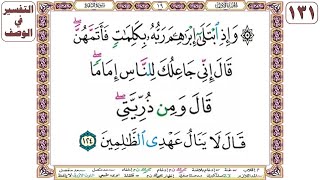 التفسير
في
الوصف
١٦
١٣١
وَإِذِ ٱبْتَلَىٰٓ إِبْرَٰهِـۧمَ رَبُّهُۥ بِكَلِمَٰتٍ فَأَتَمَّهُنَّ ۖ
قَالَ إِنِّي جَاعِلُكَ لِلنَّاسِ إِمَامًا ۖ
قَالَ وَمِن ذُرِّيَّتِي ۖ
قَالَ لَا يَنَالُ عَهْدِى ٱلظَّٰلِمِينَ ١٢٤